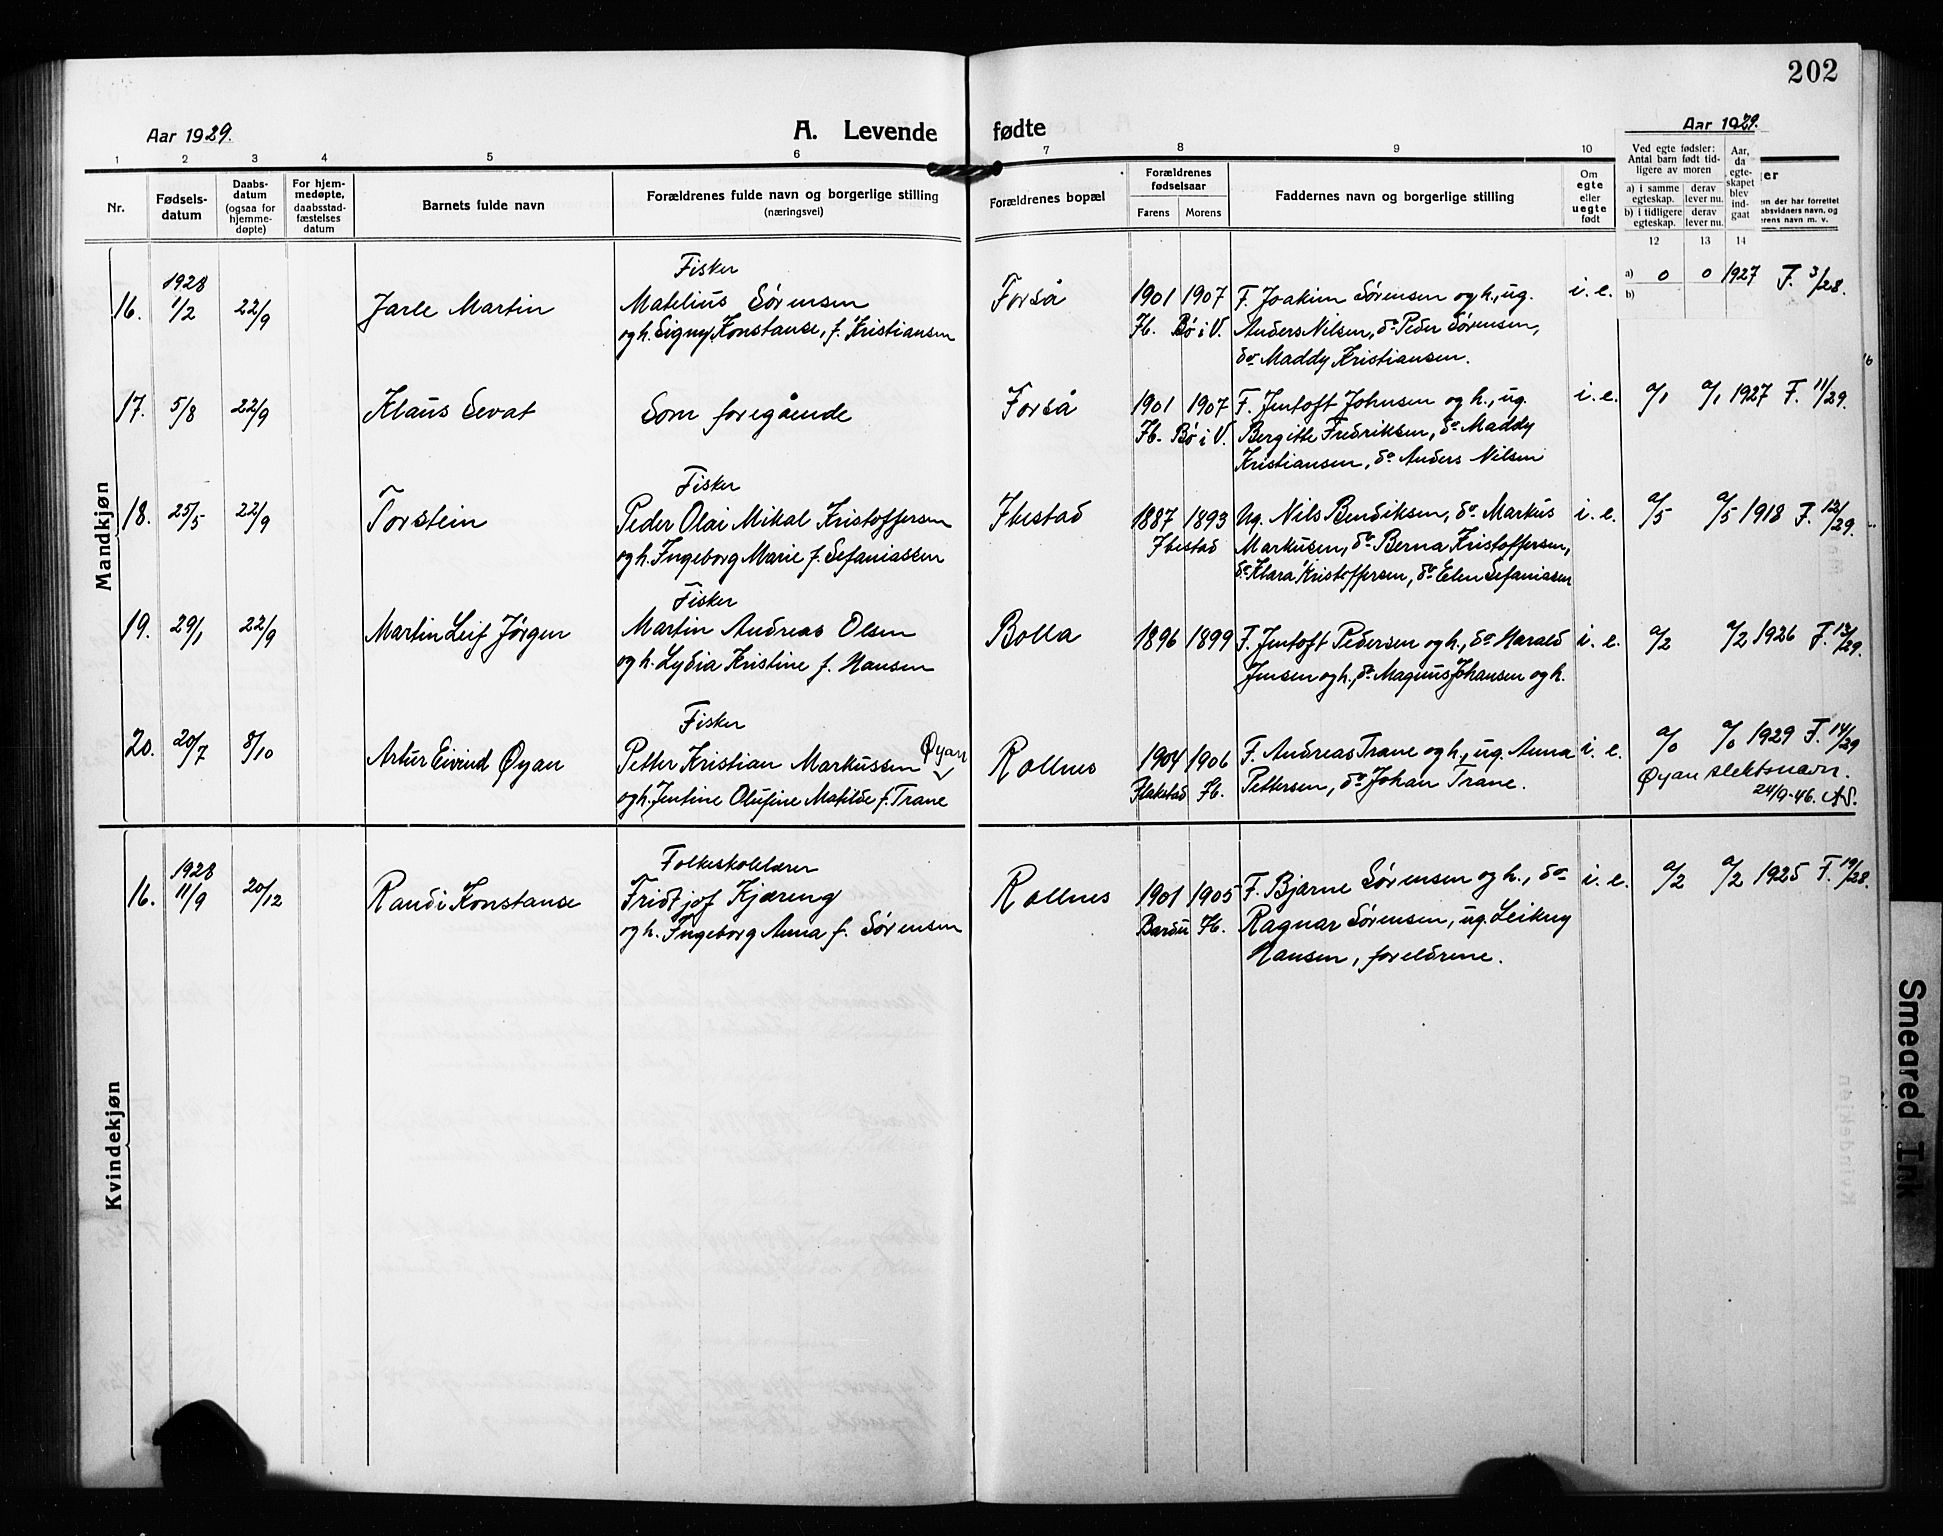 202
Aar 1929.
A. Levende fødte
Aar 1929.
1 2 3 4 5 6 7 8 9 10
Nr.
Fødsels-
datum
Daabs-
datum
(ogsaa for
hjemme-
døpte)
For hjem-
medøpte,
daabsstad-
fæstelses
datum
Barnets fulde navn
Forældrenes fulde navn og borgerlige stilling
(næringsvei)
Forældrenes bopæl
Forældrenes
fødselsaar
Farens Morens
Faddernes navn og borgerlige stilling
Om
egte
eller
uegte
født
Ved egte fødsler:
Antal barn født tid-
ligere av moren
a) i samme
egteskap.
b) i tidligere
egteskap.
derav
lever nu.
derav
lever nu.
Aar,
da
egte-
skapet
blev
ind-
gaat
12 13 14
er
en der har forrettet
absvidners navn, og
erens navn m. v.
Mandkjøn
16.
1928
1/2
22/9
Jarle Martin
Fisker
Matelius Sørensen
og h. Signy Konstanse, f. Kristiansen
Forså
1901 1907
Ib. Bø i V.
F. Joakim Sørensen og h., ug.
Anders Nilsen, do Peder Sørensen,
do Maddy Kristiansen.
i. e.
a) 0 0 1927 F. 3/28.
b)
17.
5/8
22/9
Klaus Sevat
Som foregående
Forså
1901 1907
Ib. Bø i V.
F. Jentoft Johnsen og h., ug.
Bergitte Fredriksen, do Maddy
Kristiansen, do Anders Nilsen
i. e.
a/1 a/1 1927 F. 11/29.
18.
25/5
22/9
Torstein
Fisker
Peder Olai Mikal Kristoffersen
og h. Ingeborg Marie f. Sefaniassen
Ibestad
1887 1893
Ibestad
Ug. Nils Bendiksen, do Markus
Markusen, do Berna Kristoffersen,
do Klara Kristoffersen, do Elen Sefaniassen
i. e.
a/5 a/5 1918 F. 12/29.
19.
29/1
22/9
Martin Leif Jørgen
Fisker
Martin Andreas Olsen
og h. Lydia Kristine f. Hansen
Bolla
1896 1899
F. Jentoft Pedersen og h., do Harald
Jensen og h., do Magnus Johansen og h.
i. e.
a/2 a/2 1926 F. 13/29.
20.
20/7
8/10
Artur Eivind Øyan
Fisker
Petter Kristian Markussen Øyan
og h. Jentine Olufine Matilde f. Trane
Rollnes
1904 1906
Flakstad Ib.
F. Andreas Trane og h., ug. Anna
Pettersen, do Johan Trane.
i. e.
a/0 a/0 1929 F. 14/29
Øyan slektsnavn.
24/9-46.
Kvindekjøn
16.
1928
11/9
20/12
Randi Konstanse
Folkeskolelærer
Fridtjof Kjæreng
og h. Ingeborg Anna f. Sørensen
Rollnes
1901 1905
Bardu Ib.
F. Bjarne Sørensen og h., do
Ragnar Sørensen, ug. Leikny
Hansen, foreldrene.
i. e.
a/2 a/2 1925 F. 19/28.
Smeared Ink